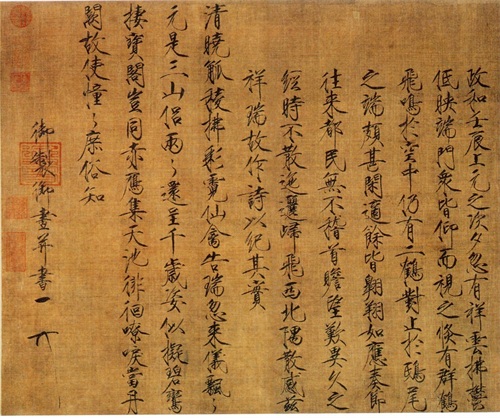 政和壬辰上元之次夕忽有祥雲拂鬱
低映端門衆皆仰而視之倏有群鶴
飛鳴於空中仍有二鶴對止於鴟尾
之端頗甚閑適餘皆翱翔如應奏節
往來都民無不稽首瞻望歎異久之
經時不散迤邐歸飛西北隅散感茲
祥瑞故作詩以紀其實
清曉觚稜拂彩霓仙禽告瑞忽來儀飄々
元是三山侶兩々還呈千歲姿似擬碧鸞
棲寶閣豈同赤鴈集天池徘徊嘹唳當丹
闕故使憧々庶俗知
御製御畫并書